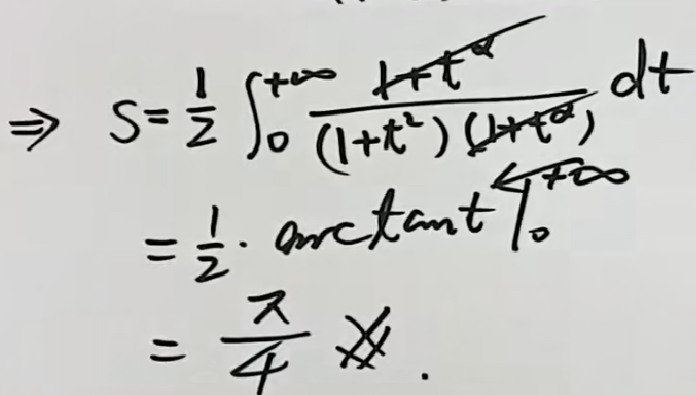 ⇒ S = 1/2 ∫₀^{+∞} (1+t^α)/((1+t²)(1+t^α)) dt
= 1/2 · arctan t |₀^{+∞}
= π/4 ※.